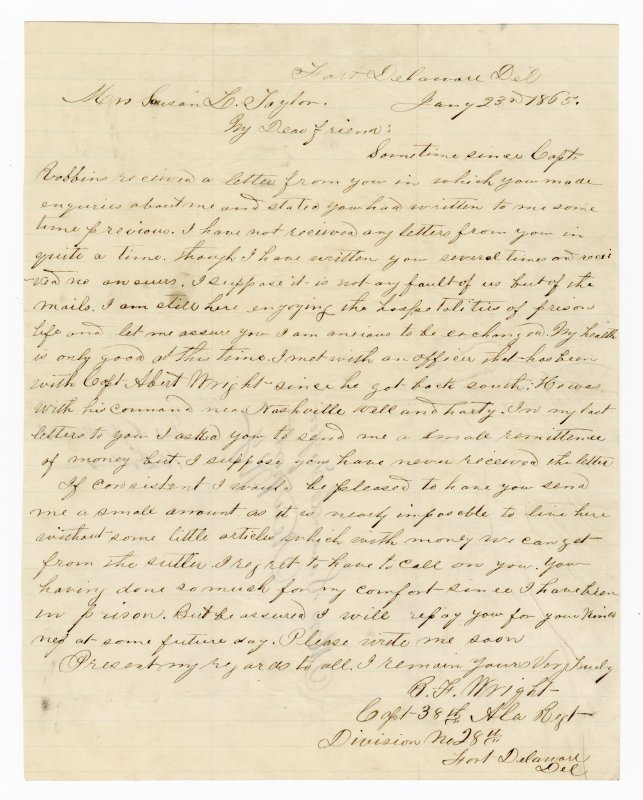 Fort Delaware Del
Mrs Susan L. Taylor. Jany 23rd 1865.
My Dear friend:
Sometime since Capt.
Robbins received a letter from you in which you made
enquries about me and stated you had written to me some
time previous. I have not received any letters from you in
quite a time. though I have written you several times and recei
ved no answers. I suppose it is not any fault of us but of the
mails. I am still here enjoying the hospetalities of prison
life and let me assure you I am anxious to be exchanged. My health
is only good at this time. I met with an officer that has been
with Capt Abert Wright since he got back south. He was
with his command near Nashville well and harty. In my last
letters to you I asked you to send me a small remittence
of money but. I suppose you have never received the letter
If consistent I would be pleased to have you send
me a small amount as it is nearly imposible to live here
without some little articles which with money we can get
from the sutler. I regret to have to call on you. You
having done so much for my comfort since I have been
in prison. But be assured I will repay you for your kind
nes at some future day. Please write me soon
Present my regards to all. I remain yours Very Truly
R. F. Wright
Capt 38th Ala Regt
Division No 28th
Fort Delaware
Del